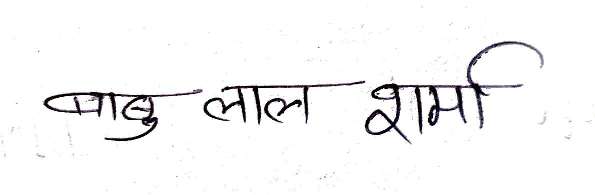 बाबु लाल शर्मा